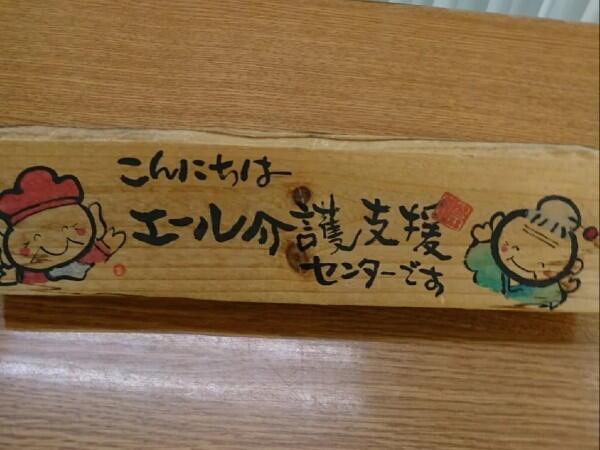 こんにちは
エール介護支援
センターです